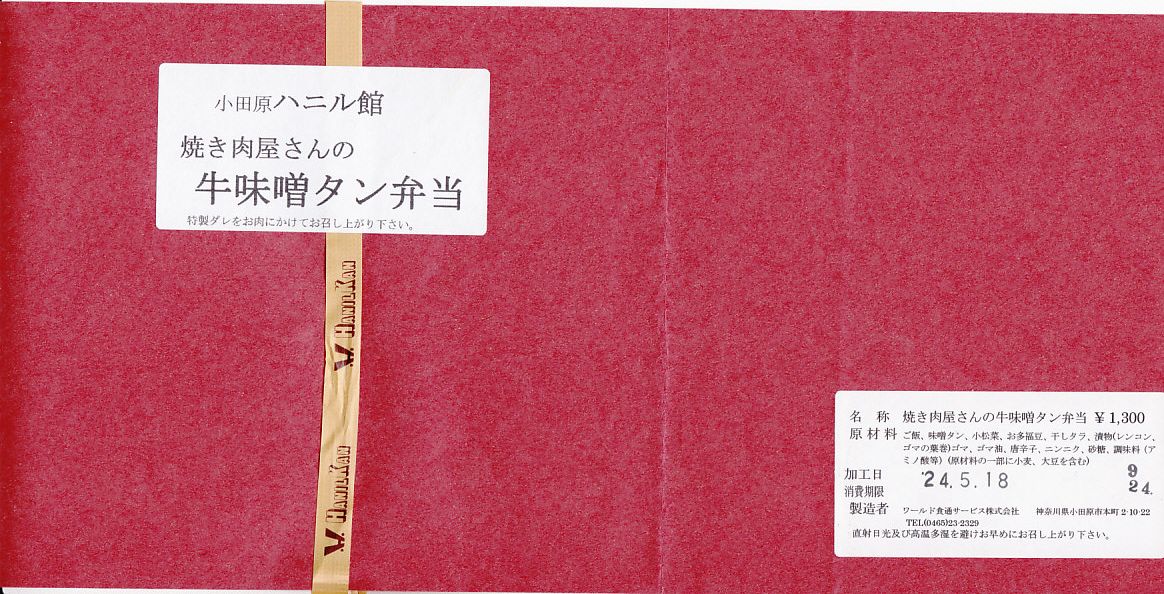 小田原ハニル館
焼き肉屋さんの
牛味噌タン弁当
特製ダレをお肉にかけてお召し上がり下さい。
HANILKAN
HANILKAN
名 称 焼き肉屋さんの牛味噌タン弁当 ¥1,300
原材料 ご飯、味噌タン、小松菜、お多福豆、干しタラ、漬物(レンコン、
ゴマの葉巻)ゴマ、ゴマ油、唐辛子、ニンニク、砂糖、調味料(ア
ミノ酸等)(原材料の一部に小麦、大豆を含む)
加工日 '24.5.18 9
消費期限 24.
製造者 ワールド食通サービス株式会社 神奈川県小田原市本町2-10-22
TEL(0465)23-2329
直射日光及び高温多湿を避けお早めにお召し上がり下さい。